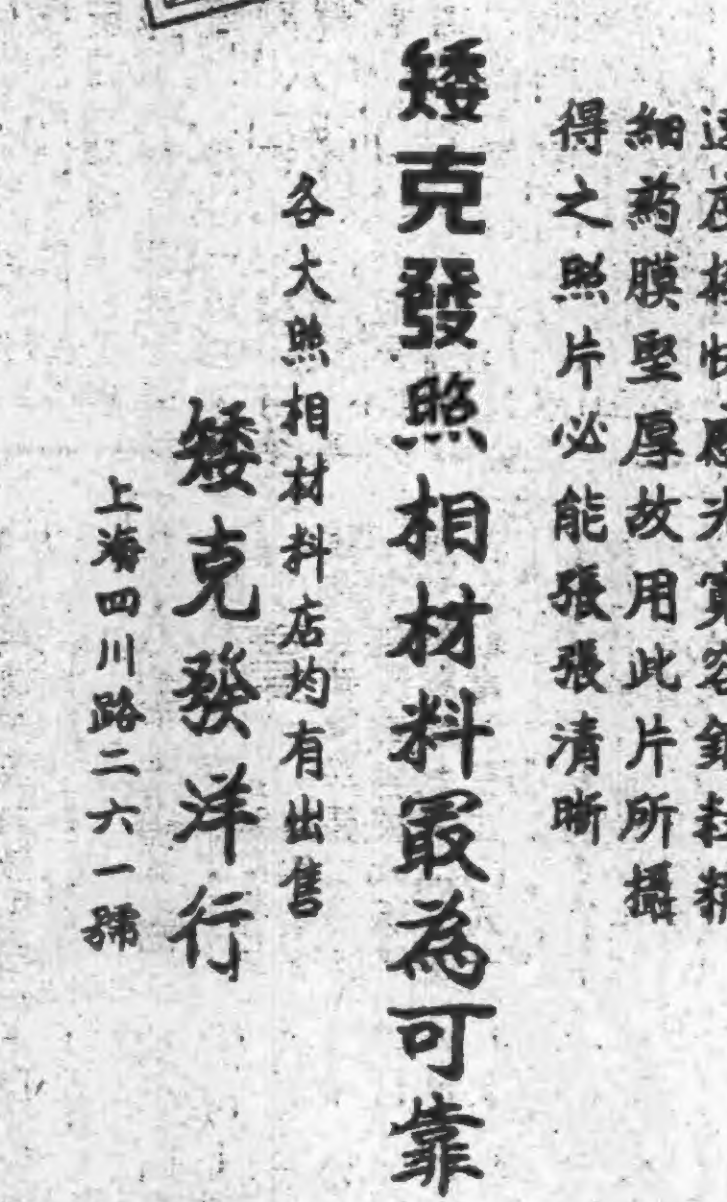 速度極快感光寬容銀粒精
細药膜堅厚故用此片所攝
得之照片必能張張清晰
矮克發照相材料最為可靠
各大照相材料店均有出售
矮克發洋行
上海四川路二六一號